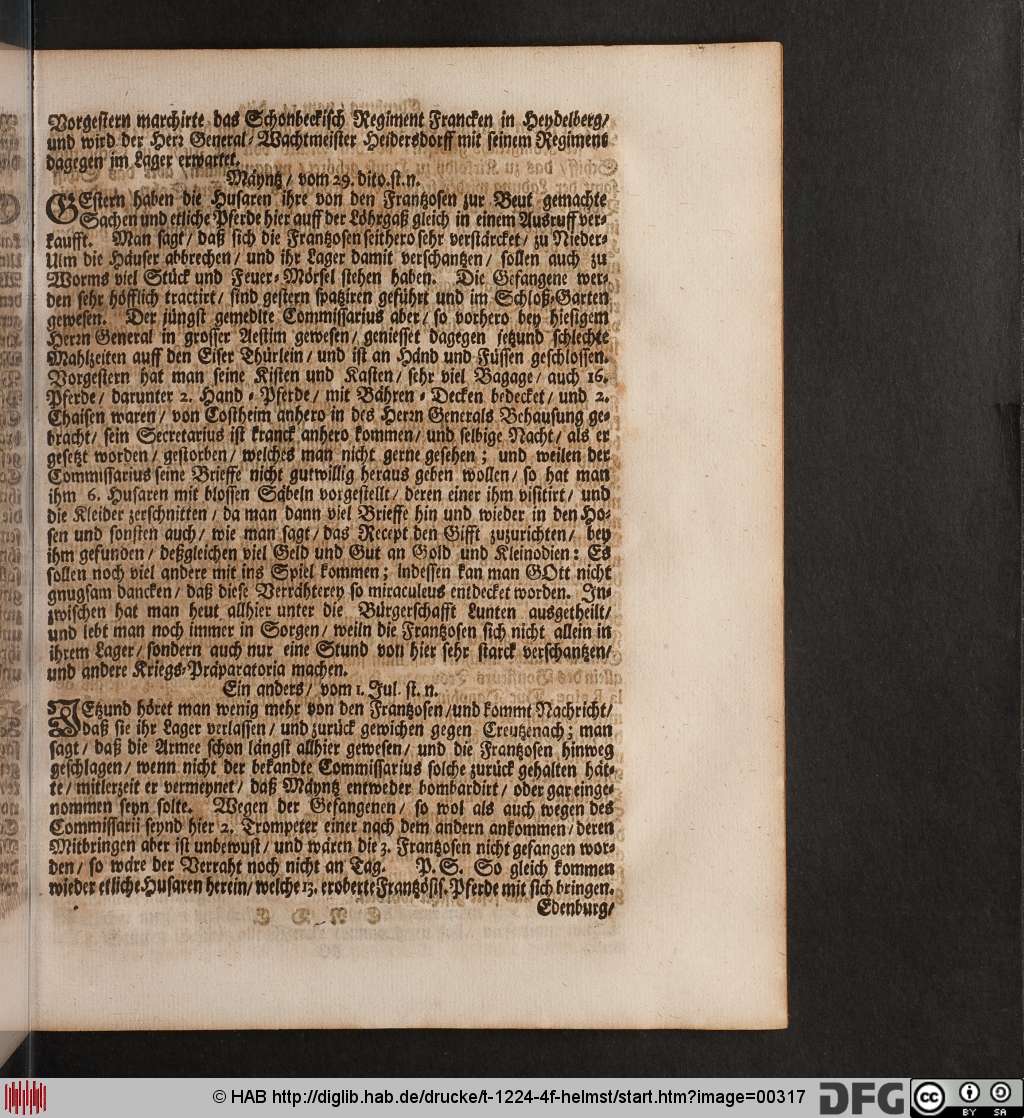 Vorgestern marchirte das Schönbeckisch Regiment Francken in Heydelberg/
und wird der Herr General-Wachtmeister Heidersdorff mit seinem Regiment
dagegen im Lager erwartet.
Mäyntz/ vom 29. dito.st.n.
GEstern haben die Husaren ihre von den Frantzosen zur Beut gemachte
Sachen und etliche Pferde hier auff der Löhrgaß gleich in einem Ausruff ver-
kaufft. Man sagt/ daß sich die Frantzosen seithero sehr verstärcket/ zu Nieder-
Ulm die Häuser abbrechen/ und ihr Lager damit verschantzen/ sollen auch zu
Worms viel Stück und Feuer-Mörsel stehen haben. Die Gefangene wer-
den sehr höfflich tractirt/ sind gestern spatziren geführt und im Schloß-Garten
gewesen. Der jüngst gemeldte Commissarius aber/ so vorhero bey hiesigem
Herrn General in grosser Aestim gewesen/ geniesset dagegen jetzund schlechte
Mahlzeiten auff den Eiser Thürlein/ und ist an Händ und Füssen geschlossen.
Vorgestern hat man seine Kisten und Kasten/ sehr viel Bagage/ auch 16.
Pferde/ darunter 2. Hand-Pferde/ mit Bähren-Decken bedecket/ und 2.
Chaisen waren/ von Costheim anhero in des Herrn Generals Behausung ge-
bracht/ sein Secretarius ist kranck anhero kommen/ und selbige Nacht/ als er
gesetzt worden/ gestorben/ welches man nicht gerne gesehen; und weilen der
Commissarius seine Brieffe nicht gutwillig heraus geben wollen/ so hat man
ihm 6. Husaren mit blossen Säbeln vorgestellt/ deren einer ihm visitirt/ und
die Kleider zerschnitten/ da man dann viel Brieffe hin und wieder in den Ho-
sen und sonsten auch/ wie man sagt/ das Recept den Gifft zuzurichten/ bey
ihm gefunden/ deßgleichen viel Geld und Gut an Gold und Kleinodien: Es
sollen noch viel andere mit ins Spiel kommen; indessen kan man GOtt nicht
gnugsam dancken/ daß diese Verrähterey so miraculeus entdecket worden. In-
zwischen hat man heut allhier unter die Bürgerschafft Lunten ausgetheilt/
und lebt man noch immer in Sorgen/ weiln die Frantzosen sich nicht allein in
ihrem Lager/ sondern auch nur eine Stund von hier sehr starck verschantzen/
und andere Kriegs-Präparatoria machen.
Ein anders/ vom 1. Jul. st. n.
JEtzund höret man wenig mehr von den Frantzosen/ und kommt Nachricht/
daß sie ihr Lager verlassen/ und zurück gewichen gegen Creutzenach; man
sagt/ daß die Armee schon längst allhier gewesen/ und die Frantzosen hinweg
geschlagen/ wenn nicht der bekandte Commissarius solche zurück gehalten hät-
te/ mitlerzeit er vermeynet/ daß Mäyntz entweder bombardirt/ oder gar einge-
nommen seyn solte. Wegen der Gefangenen/ so wol als auch wegen des
Commissarii seynd hier 2. Trompeter einer nach dem andern ankommen/ deren
Mitbringen aber ist unbewust/ und wären die 3. Frantzosen nicht gefangen wor-
den/ so wäre der Verraht noch nicht an Tag. P. S. So gleich kommen
wieder etliche Husaren herein/ welche 13. eroberte Frantzösis. Pferde mit sich bringen.
Edenburg/
© HAB http://diglib.hab.de/drucke/t-1224-4f-helmst/start.htm?image=00317
DFG
cc
BY SA